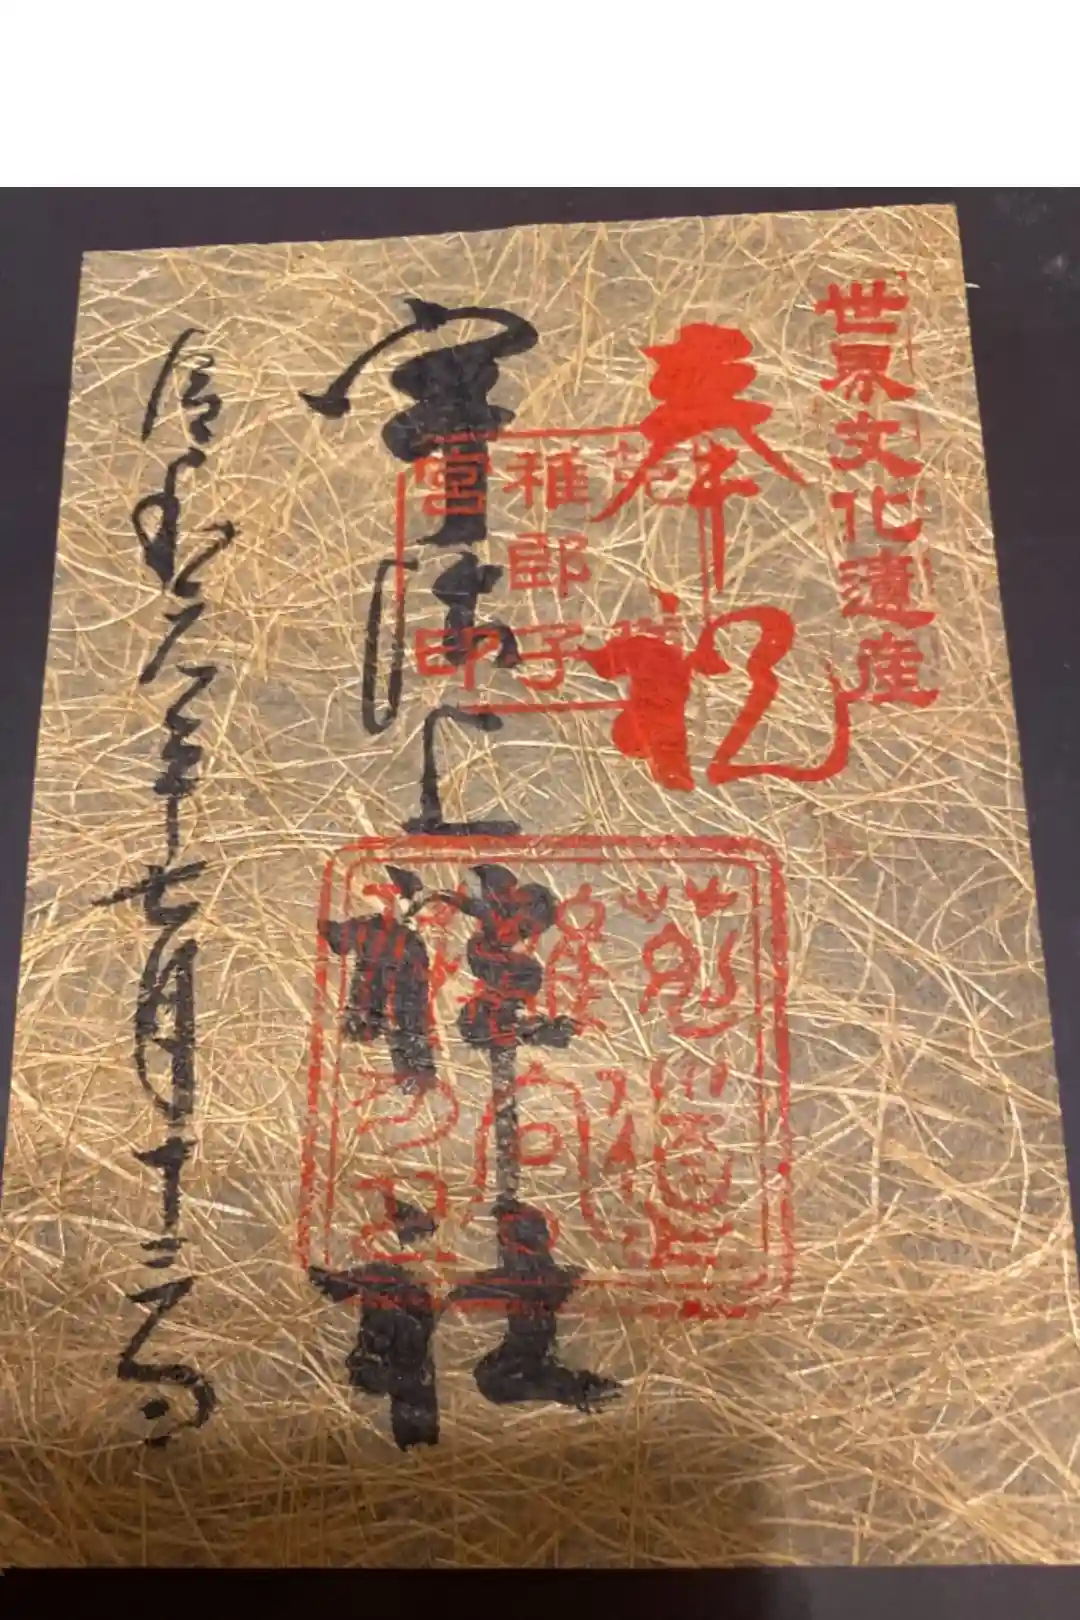 世界文化遺産
奉拝
菟道
稚郎子
宮印
宇治上神社
令和六年七月十二日